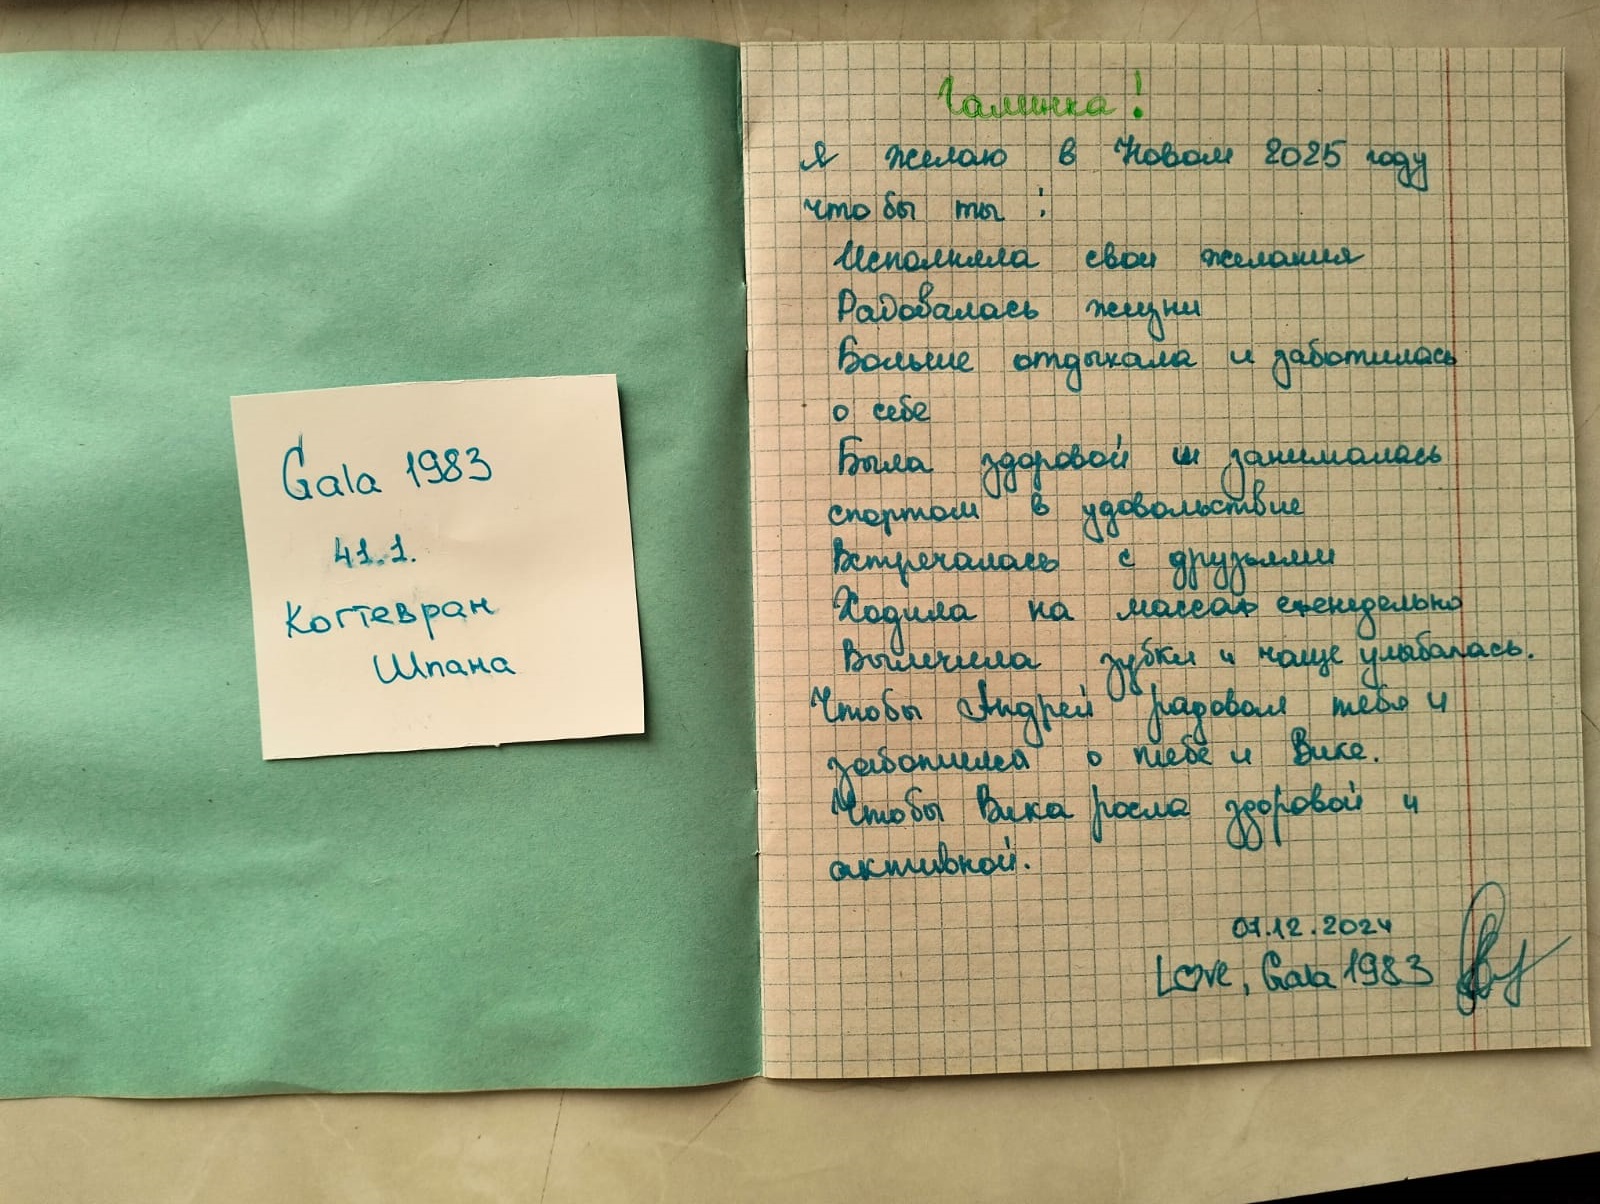 Gala 1983
41.1.
Когтевран
Шпана
Галинка!
Я желаю в Новом 2025 году
что бы ты :
Исполняла свои желания
Радовалась жизни
Больше отдыхала и заботилась
о себе
Была здоровой и занималась
спортом в удовольствие
Встречалась с друзьями
Ходила на массаж еженедельно
Вылечила зубки и чаще улыбалась.
Чтобы Андрей радовал тебя и
заботился о тебе и Вике.
Чтобы Вика росла здоровой и
активной.
07.12.2024
Love, Gala 1983